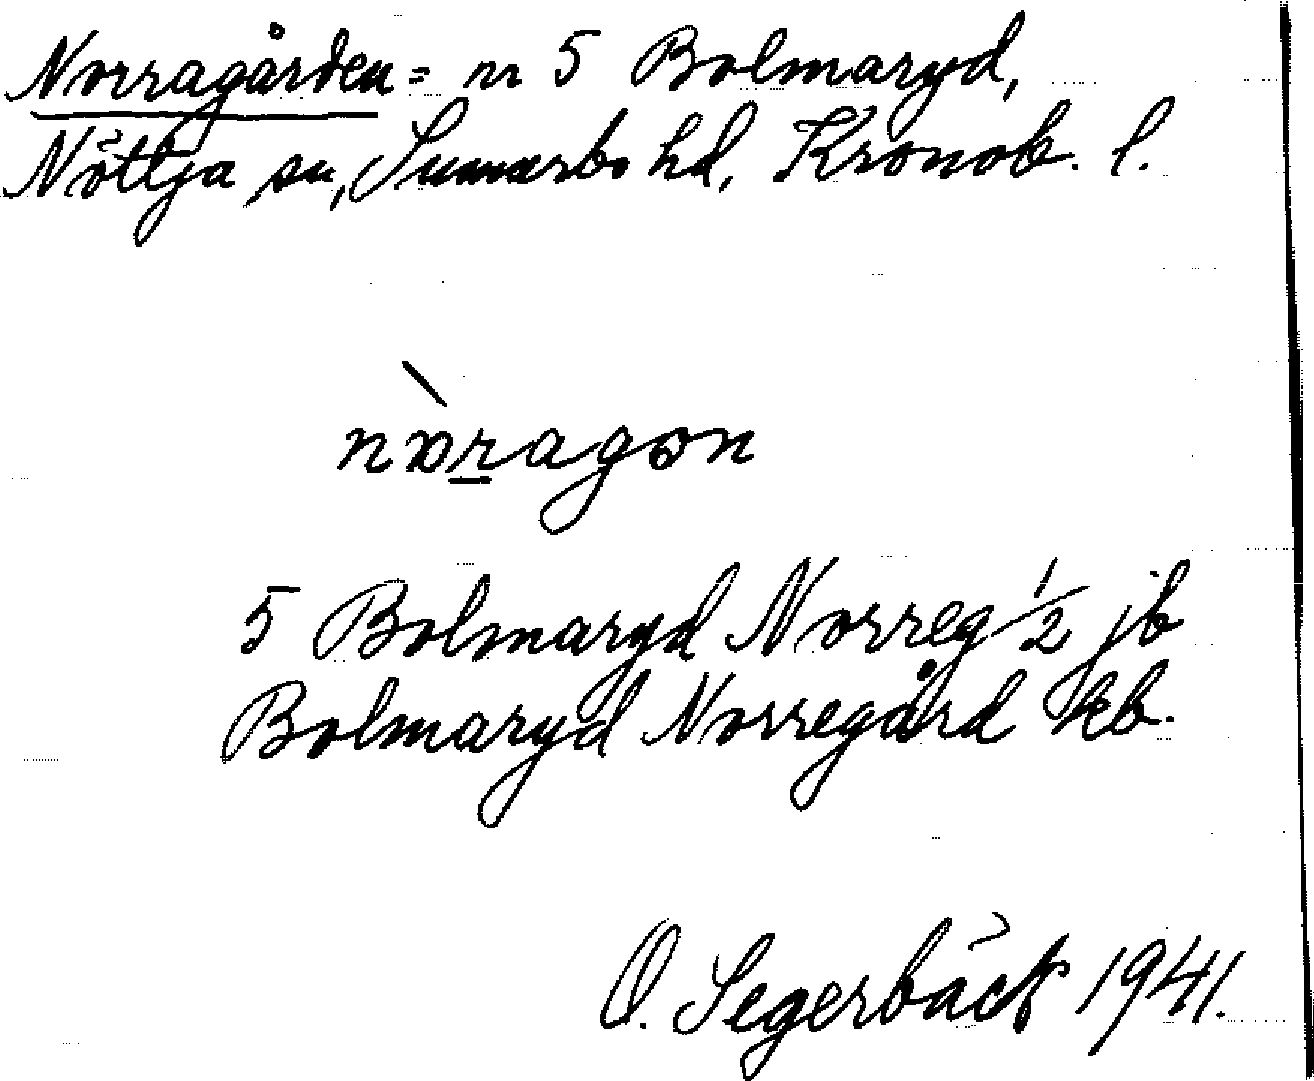 Norragården = nr 5 Bolmaryd,
Nöttja sn, Sunnerbo hd, Kronob. l.
nòragon
5 Bolmaryd Norreg 1/2 jb
Bolmaryd Norregård kb.
O. Segerbäck 1941.